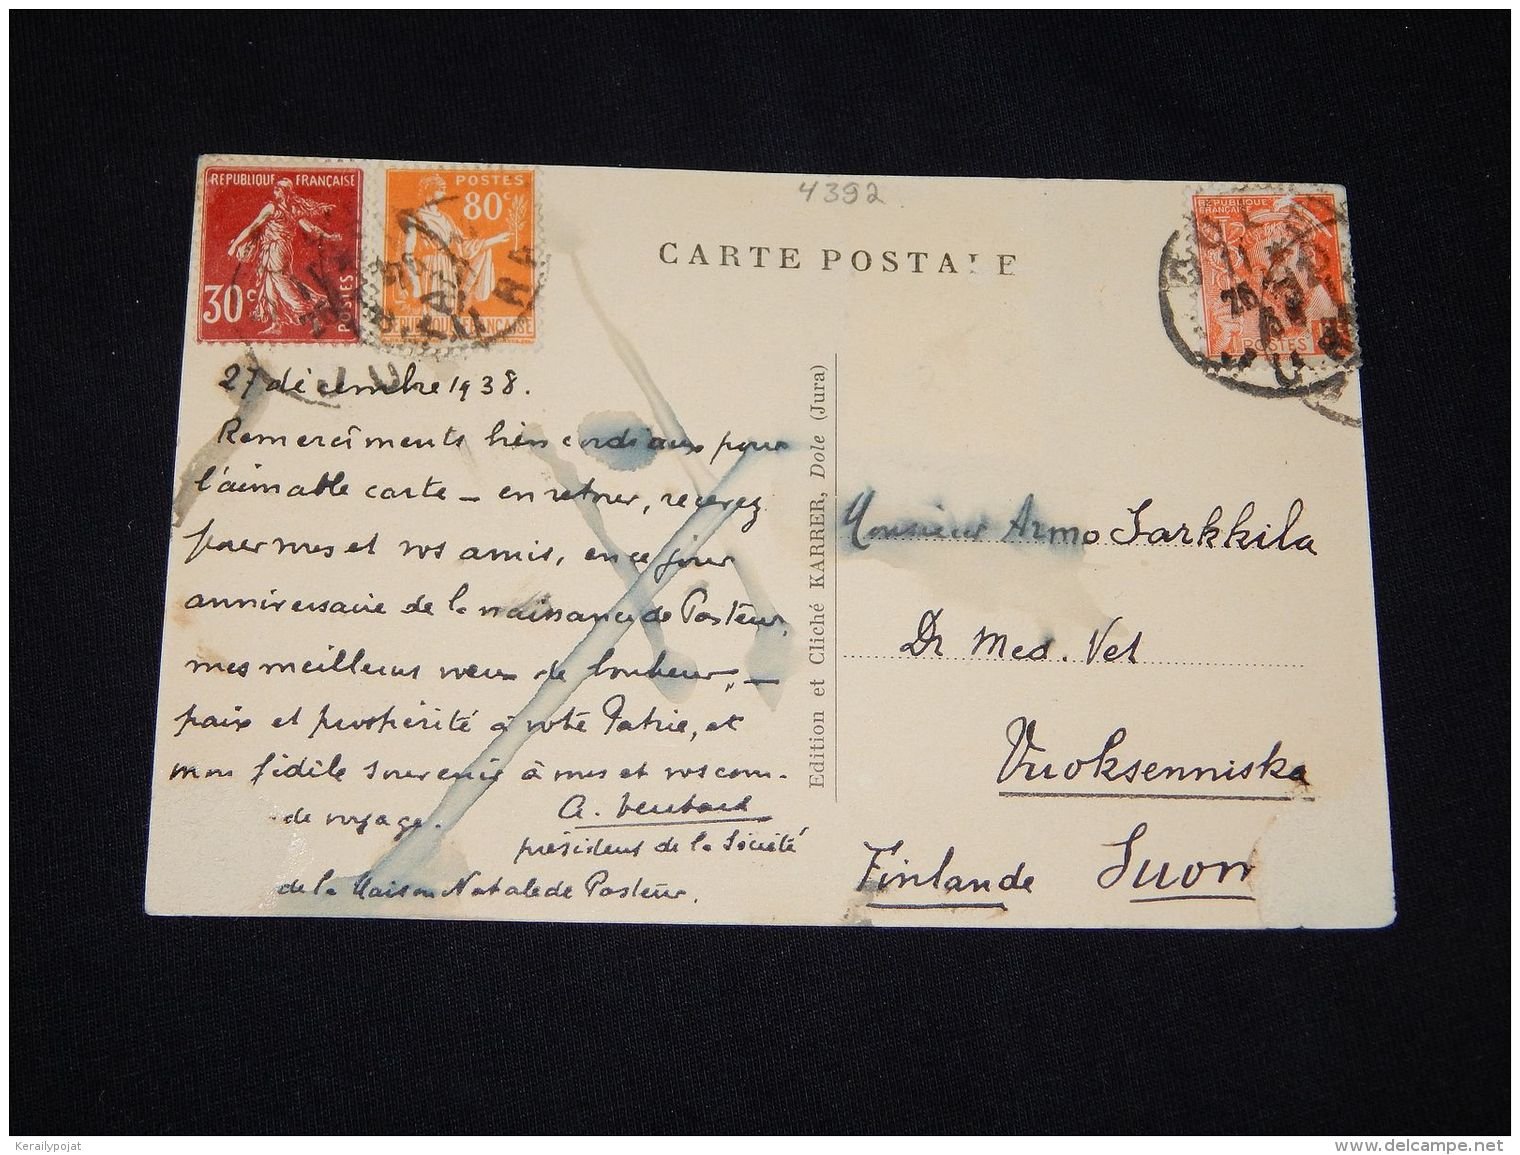 REPUBLIQUE FRANÇAISE
30c
POSTES
POSTES
80c
REPUBLIQUE FRANÇAISE
4392
CARTE POSTALE
REPUBLIQUE
FRANÇAISE
POSTES
27 décembre 1938.
Remerciments bien cordiaux pour
l'aimable carte – en retour, recevez
pour mes et vos amis, en ce jour
anniversaire de la naissance de Pasteur,
mes meilleurs vœux de bonheur, –
paix et prospérité à votre Patrie, et
mon fidèle souvenir à mes et vos com-
de voyage.
A.
président de la Société
de la Maison Natale de Pasteur.
Edition et Cliché KARRER, Dole (Jura)
Monsieur Armo Sarkkila
Dr Med. Vet
Vuoksenniska
Finlande Suomi
Kerailypojat
www.delcampe.net